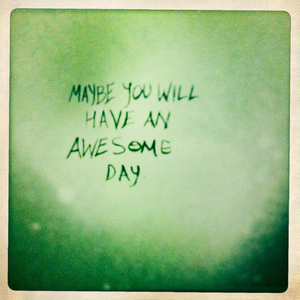 MAYBE YOU WILL
HAVE AN
AWESOME
DAY.